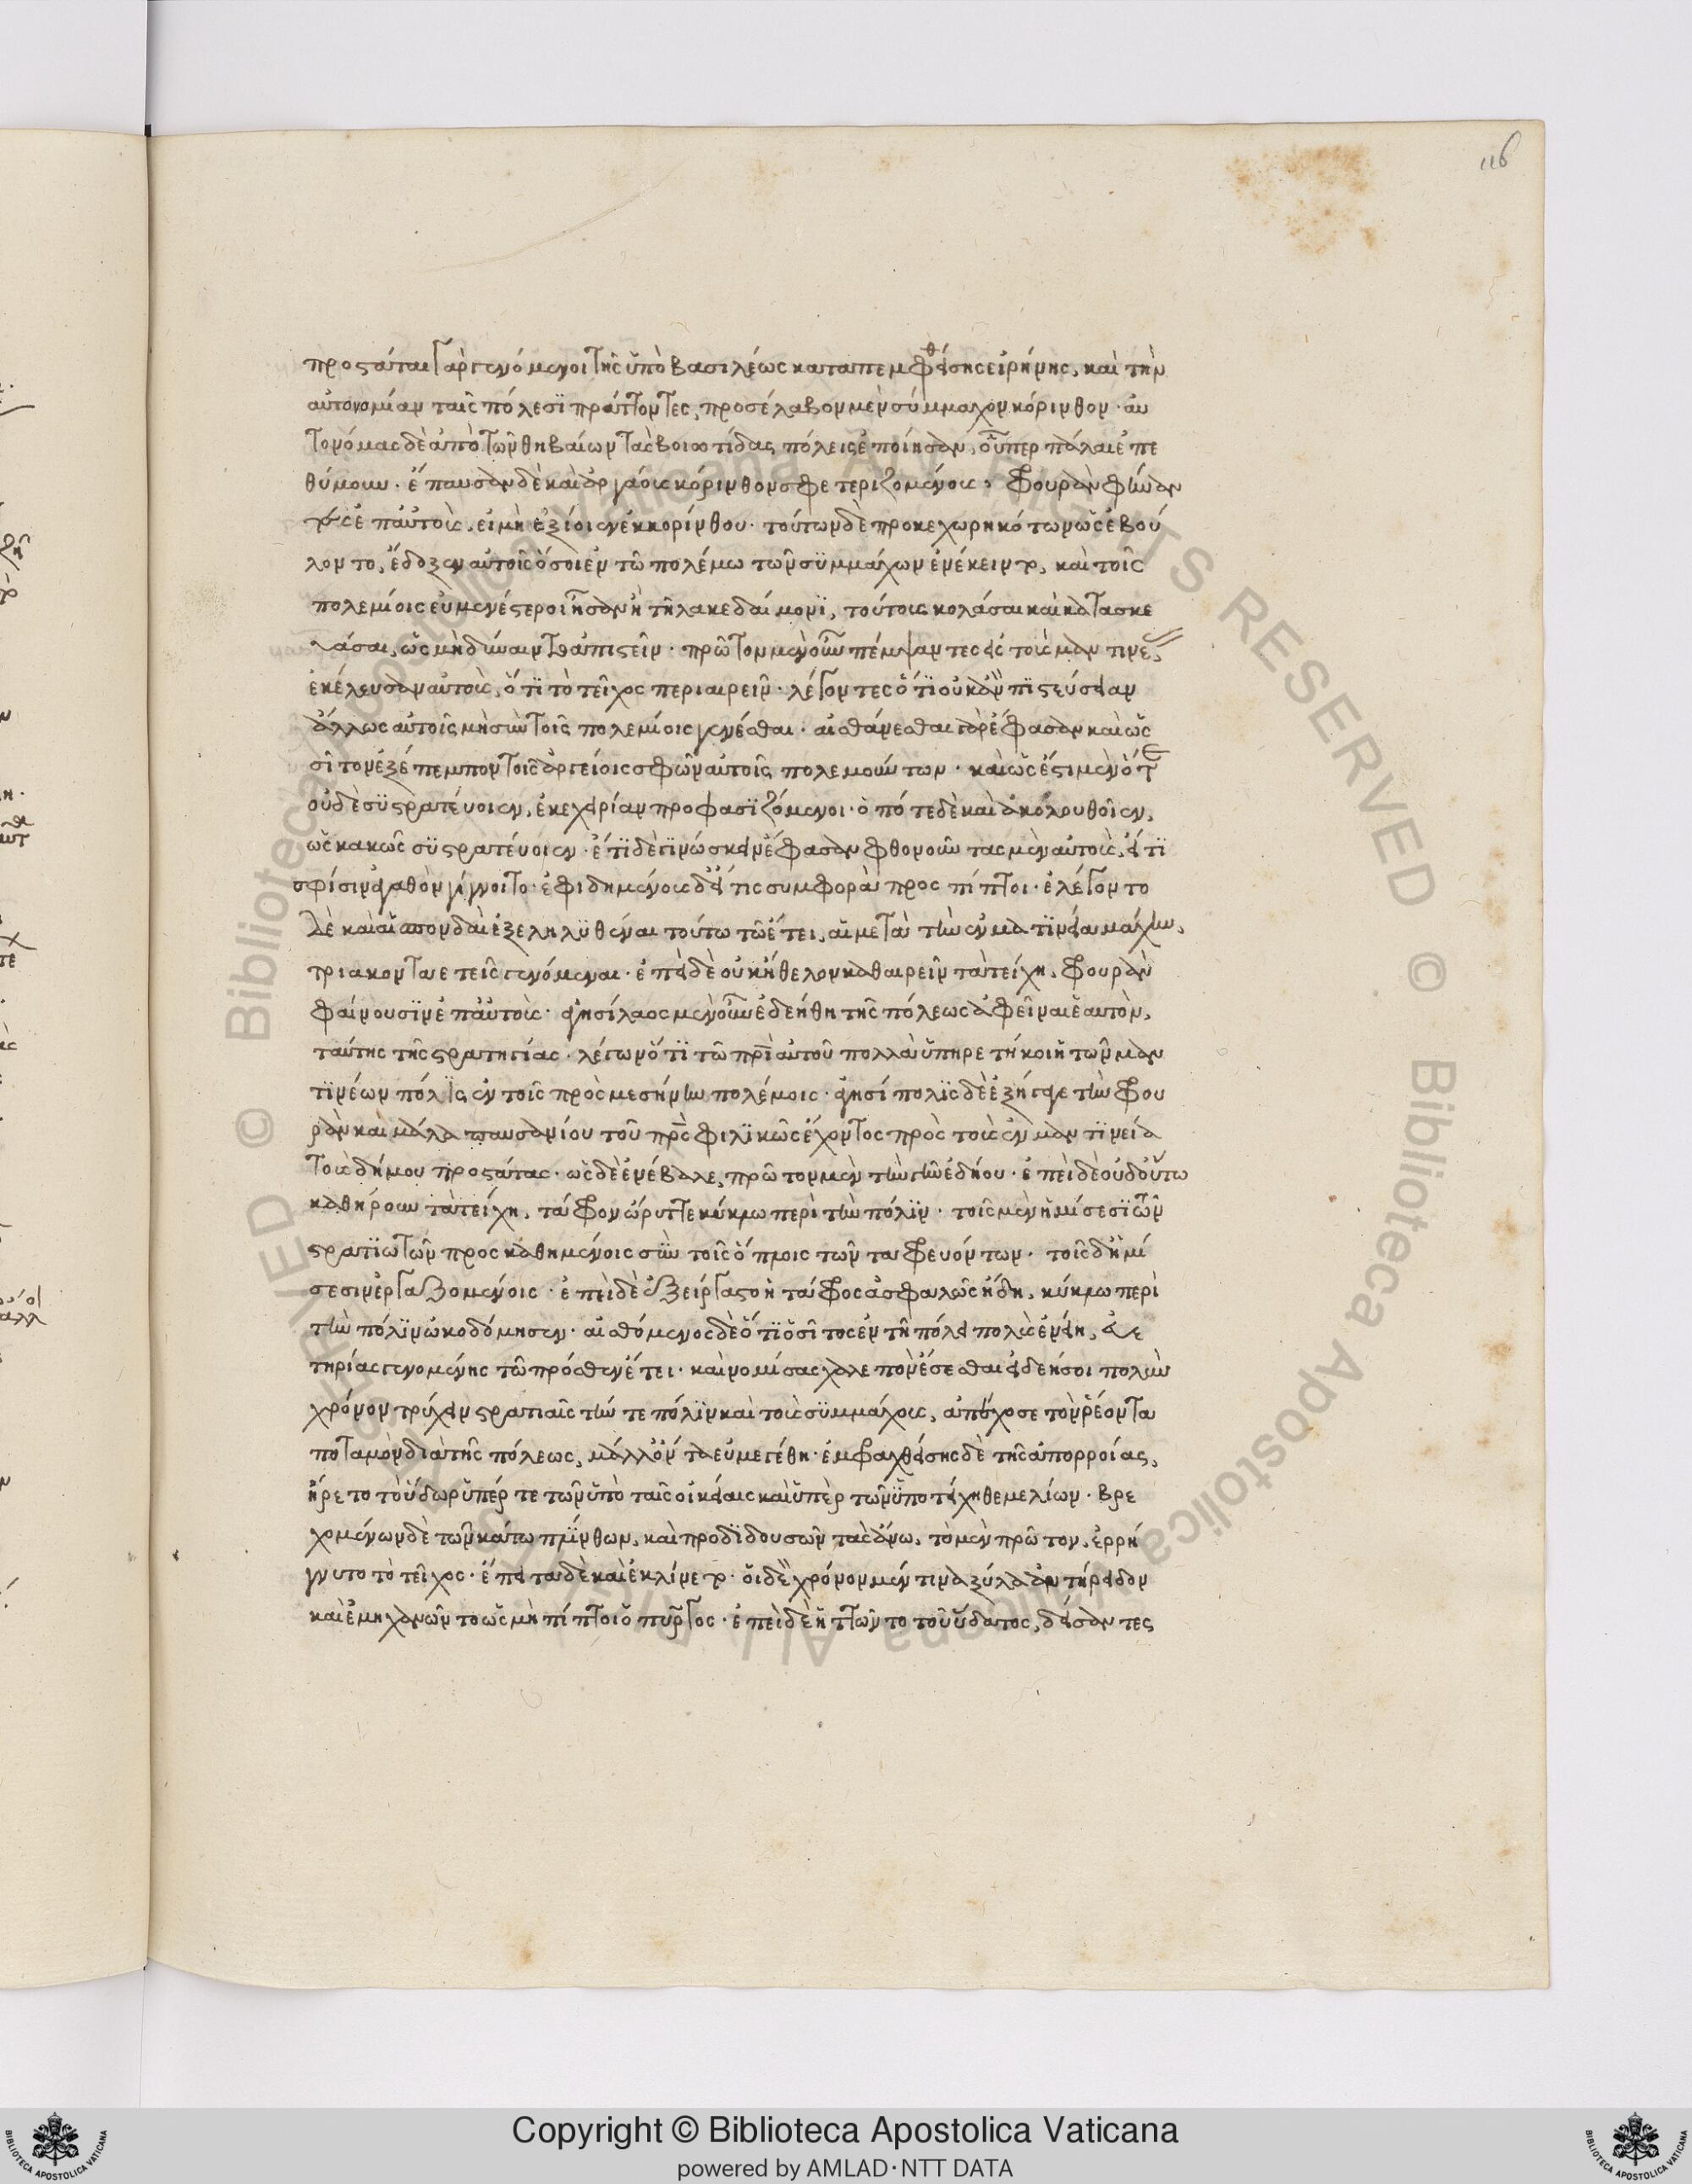 116
προστάται γὰρ γενόμενοι τῆς ὑπὸ βασιλέως καταπεμφθείσης εἰρήνης, καὶ τὴν
αὐτονομίαν ταῖς πόλεσϊ πράττοντες, προσέλαβον μὲν σύμμαχον κόρινθον· αὐ
τονόμας δὲ ἀπὸ τῶν θηβαίων τὰς βοιωτίδας πόλεις ἐποίησαν, οὗπερ πάλαι ἐπε
θύμουν· ἔπαυσαν δὲ καὶ ἀργείους κόρινθον σφετεριζομένους, φρουρὰν φήναν
τες ἐπ' αὐτοὺς, εἰ μὴ ἐξίοιεν ἐκ κορίνθου· τούτων δὲ προκεχωρηκότων ὡς ἐβού
λοντο, ἔδοξεν αὐτοῖς ὅσοι ἐν τῶ πολέμω τῶν σϋμμάχων ἐνέκειντο, καὶ τοῖς
πολεμίοις εὐμενέστεροι ἦσαν ἢ τῆ λακεδαίμονϊ, τούτους κολάσαι καὶ κατασκε
υάσαι, ὡς μὴ δύναιντο ἀπιστεῖν· πρῶτον μὲν οὖν πέμψαντες εἰς τοὺς μαντινέας
ἐκέλευσαν αὐτοὺς, ὅτϊ τὸ τεῖχος περιαιρεῖν· λέγοντες ὅτϊ οὐκ ἂν πϊστεύσειαν
ἄλλως αὐτοῖς μὴ σὺν τοῖς πολεμίοις γενέσθαι· αἰσθάνεσθαι γὰρ ἔφασαν καὶ ὡς
σῖτον ἐξέπεμπον τοῖς ἀργείοις σφῶν αὐτοῖς πολεμούντων· καὶ ὡς ἔστι μὲν ὅτε
οὐδὲ σϋστρατεύοιεν, ἐκεχειρίαν προφασϊζόμενοι· ὁπότε δὲ καὶ ἀκόλουθοῖεν,
ὡς κακῶς σϋστρατεύοιεν· ἔτϊ δὲ γϊνώσκειν ἔφασαν φθονοῦντας μὲν αὐτοὺς, εἴ τϊ
σφίσιν ἀγαθὸν γίγνοιτο· ἐφιδημένους δ' εἴ τις συμφορὰ προσπίπτοι· ἐλέγοντο
δὲ καὶ αἱ σπονδαὶ ἐξεληλϋθέναι τούτω τῶ ἔτει, αἱ μετὰ τὴν ἐν ματϊνεία μάχην,
τριακονταετεῖς γενόμεναι· ἐπεὶ δὲ οὐκ ἤθελον καθαιρεῖν τὰ τείχη, φρουρὰν
φαίνουσϊν ἐπ' αὐτοὺς· ἀγησίλαος μὲν οὖν ἐδεήθη τῆς πόλεως ἀφεῖναι ἑαυτὸν,
ταύτης τῆς στρατηγίας· λέγων ὅτϊ τῶ πρὶ αὐτοῦ πολλὰ ὑπηρετήκοι ἡ τῶν μαν
τϊνέων πόλϊς ἐν τοῖς πρὸς μεσήνην πολέμοις· ἀγησίπολϊς δὲ ἐξήγαγε τὴν φρου
ρὰν καὶ μάλα παυσανίου τοῦ πρς φιλϊκῶς ἔχοντος πρὸς τοὺς ἐν μαντϊνεία
τοὺς δήμου προστάτας· ὡς δὲ ἐνέβαλε, πρῶτον μὲν τὴν γῆν ἐδήου· ἐπεὶ δὲ οὐδ' οὕτω
καθήρουν τὰ τείχη, τάφρον ὤρυττε κύκλω περὶ τὴν πόλϊν· τοῖς μὲν ἡμίσεσϊ τῶν
στρατϊωτῶν προσκαθημένοις σὺν τοῖς ὅπλοις τῶν ταφρευόντων· τοῖς δ' ἡμί
σεσιν ἐργαζομένοις· ἐπεὶ δὲ ἐξείργαστο ἡ τάφρος ἀσφαλῶς ἤδη, κύκλω περὶ
τὴν πόλϊν ὠκοδόμησεν· αἰσθόμενος δὲ ὅτϊ ὁ σῖτος ἐν τῆ πόλει πολὺς ἐνείη, εὐε
τηρίας γενομένης τῶ πρόσθεν ἔτει· καὶ νομίσας χαλεπὸν ἔσεσθαι εἰ δεήσοι πολὺν
χρόνον τρύχειν στρατιαῖς τήν τε πόλϊν καὶ τοὺς σϋμμάχους, ἀπέχοσε τὸν ῥέοντα
ποταμὸν διὰ τῆς πόλεως, μάλλ' ὄντα εὐμεγέθη· ἐμφραχθείσης δὲ τῆς ἀπορροίας,
ἤρετο τὸ ὕδωρ ὑπέρ τε τῶν ὑπὸ ταῖς οἰκείαις καὶ ὑπὲρ τῶν ϋπο τείχη θεμελίων· βρε
χομένων δὲ τῶν κάτω πλίνθων, καὶ προδϊδουσῶν τὰς ἄνω, τὸ μὲν πρῶτον, ἐρρή
γνυτο τὸ τεῖχος· ἔπειτα δὲ καὶ ἐκλίνετο· οἱ δὲ χρόνον μέν τινα ξύλα ἀντήρειδον
καὶ ἐμηχανῶντο ὡς μὴ πίπτοι ὁ πυργος· ἐπεὶ δὲ ἡττῶντο τοῦ ὕδατος, δείσαντες
Copyright © Biblioteca Apostolica Vaticana
powered by AMLAD·NTT DATA